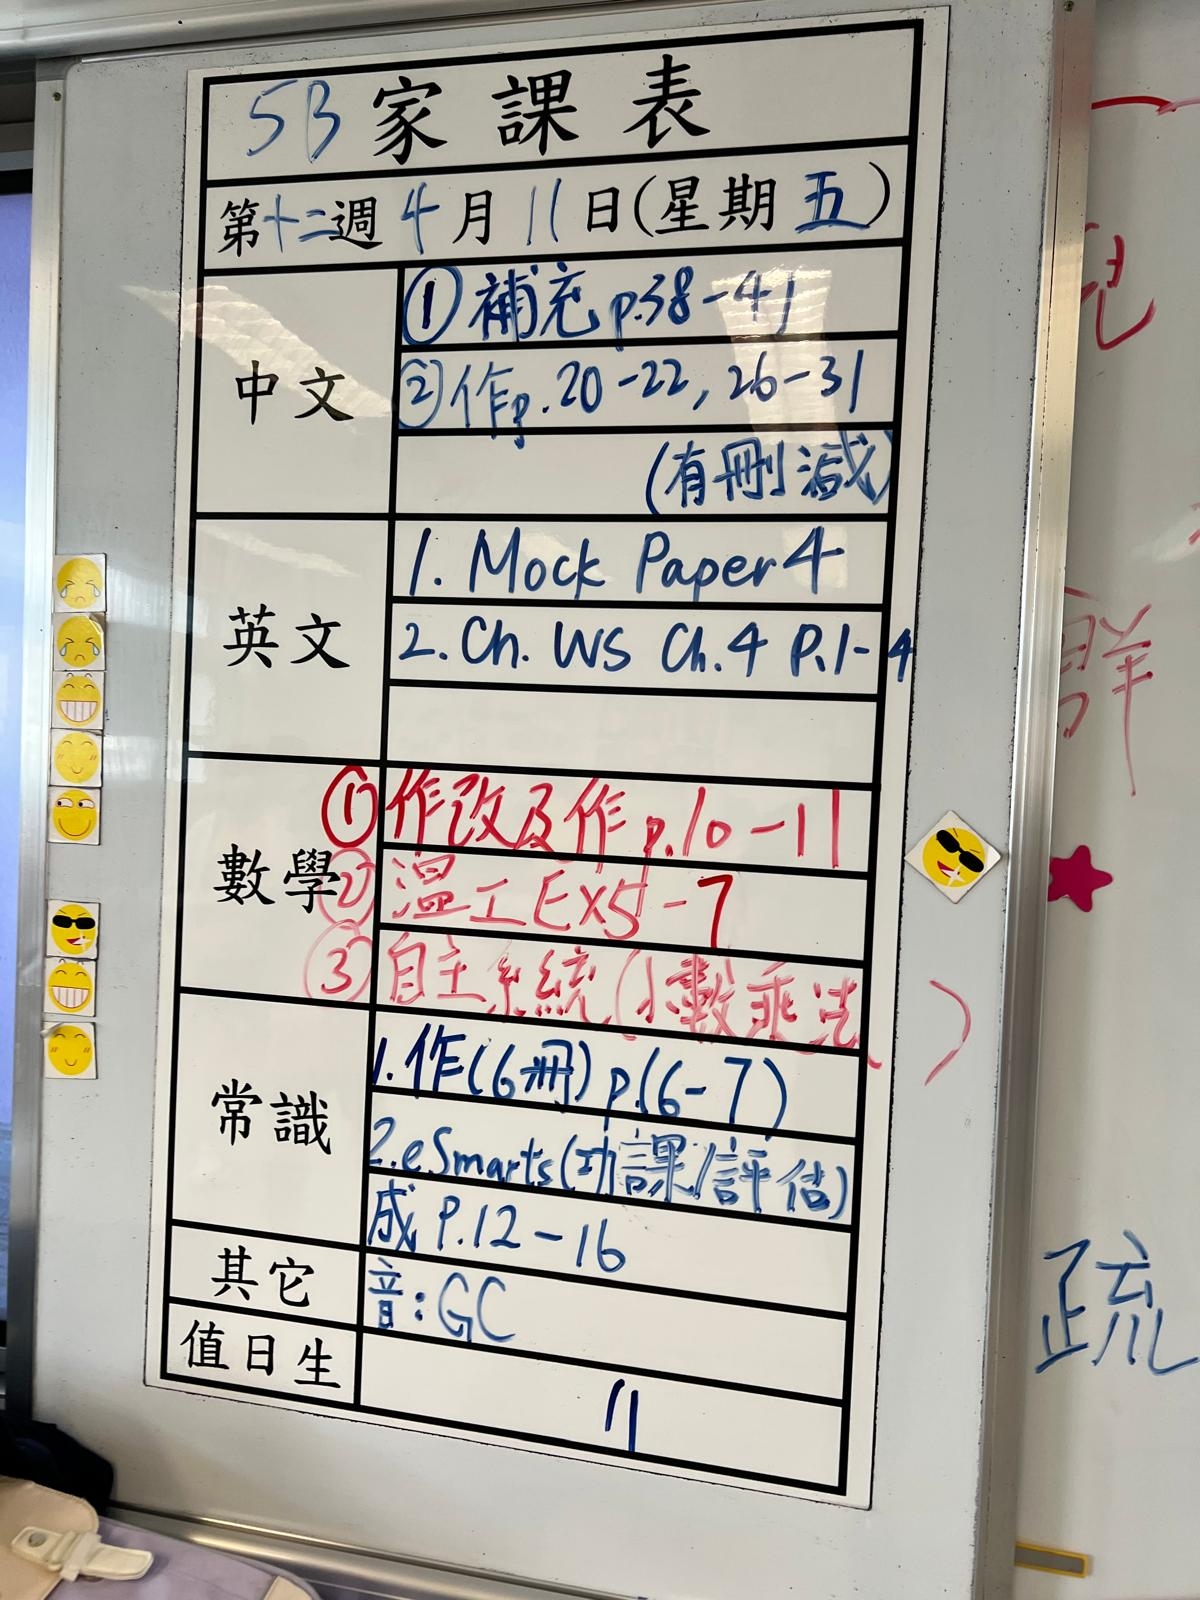 5B 家課表
第十二週 4月11日(星期五)
中文
① 補充 p.38-41
② 作 p.20-22, 26-31
(有刪減)
英文
1. Mock Paper 4
2. Ch. WS Ch.4 P.1-4
數學
① 作改及作 p.10-11
② 溫工 EX5-7
③ 自主系統(小數乘法)
常識
1. 作(6冊) p.(6-7)
2. eSmarts(功課/評估)
成 P.12-16
其它
音: GC
值日生
11
疏